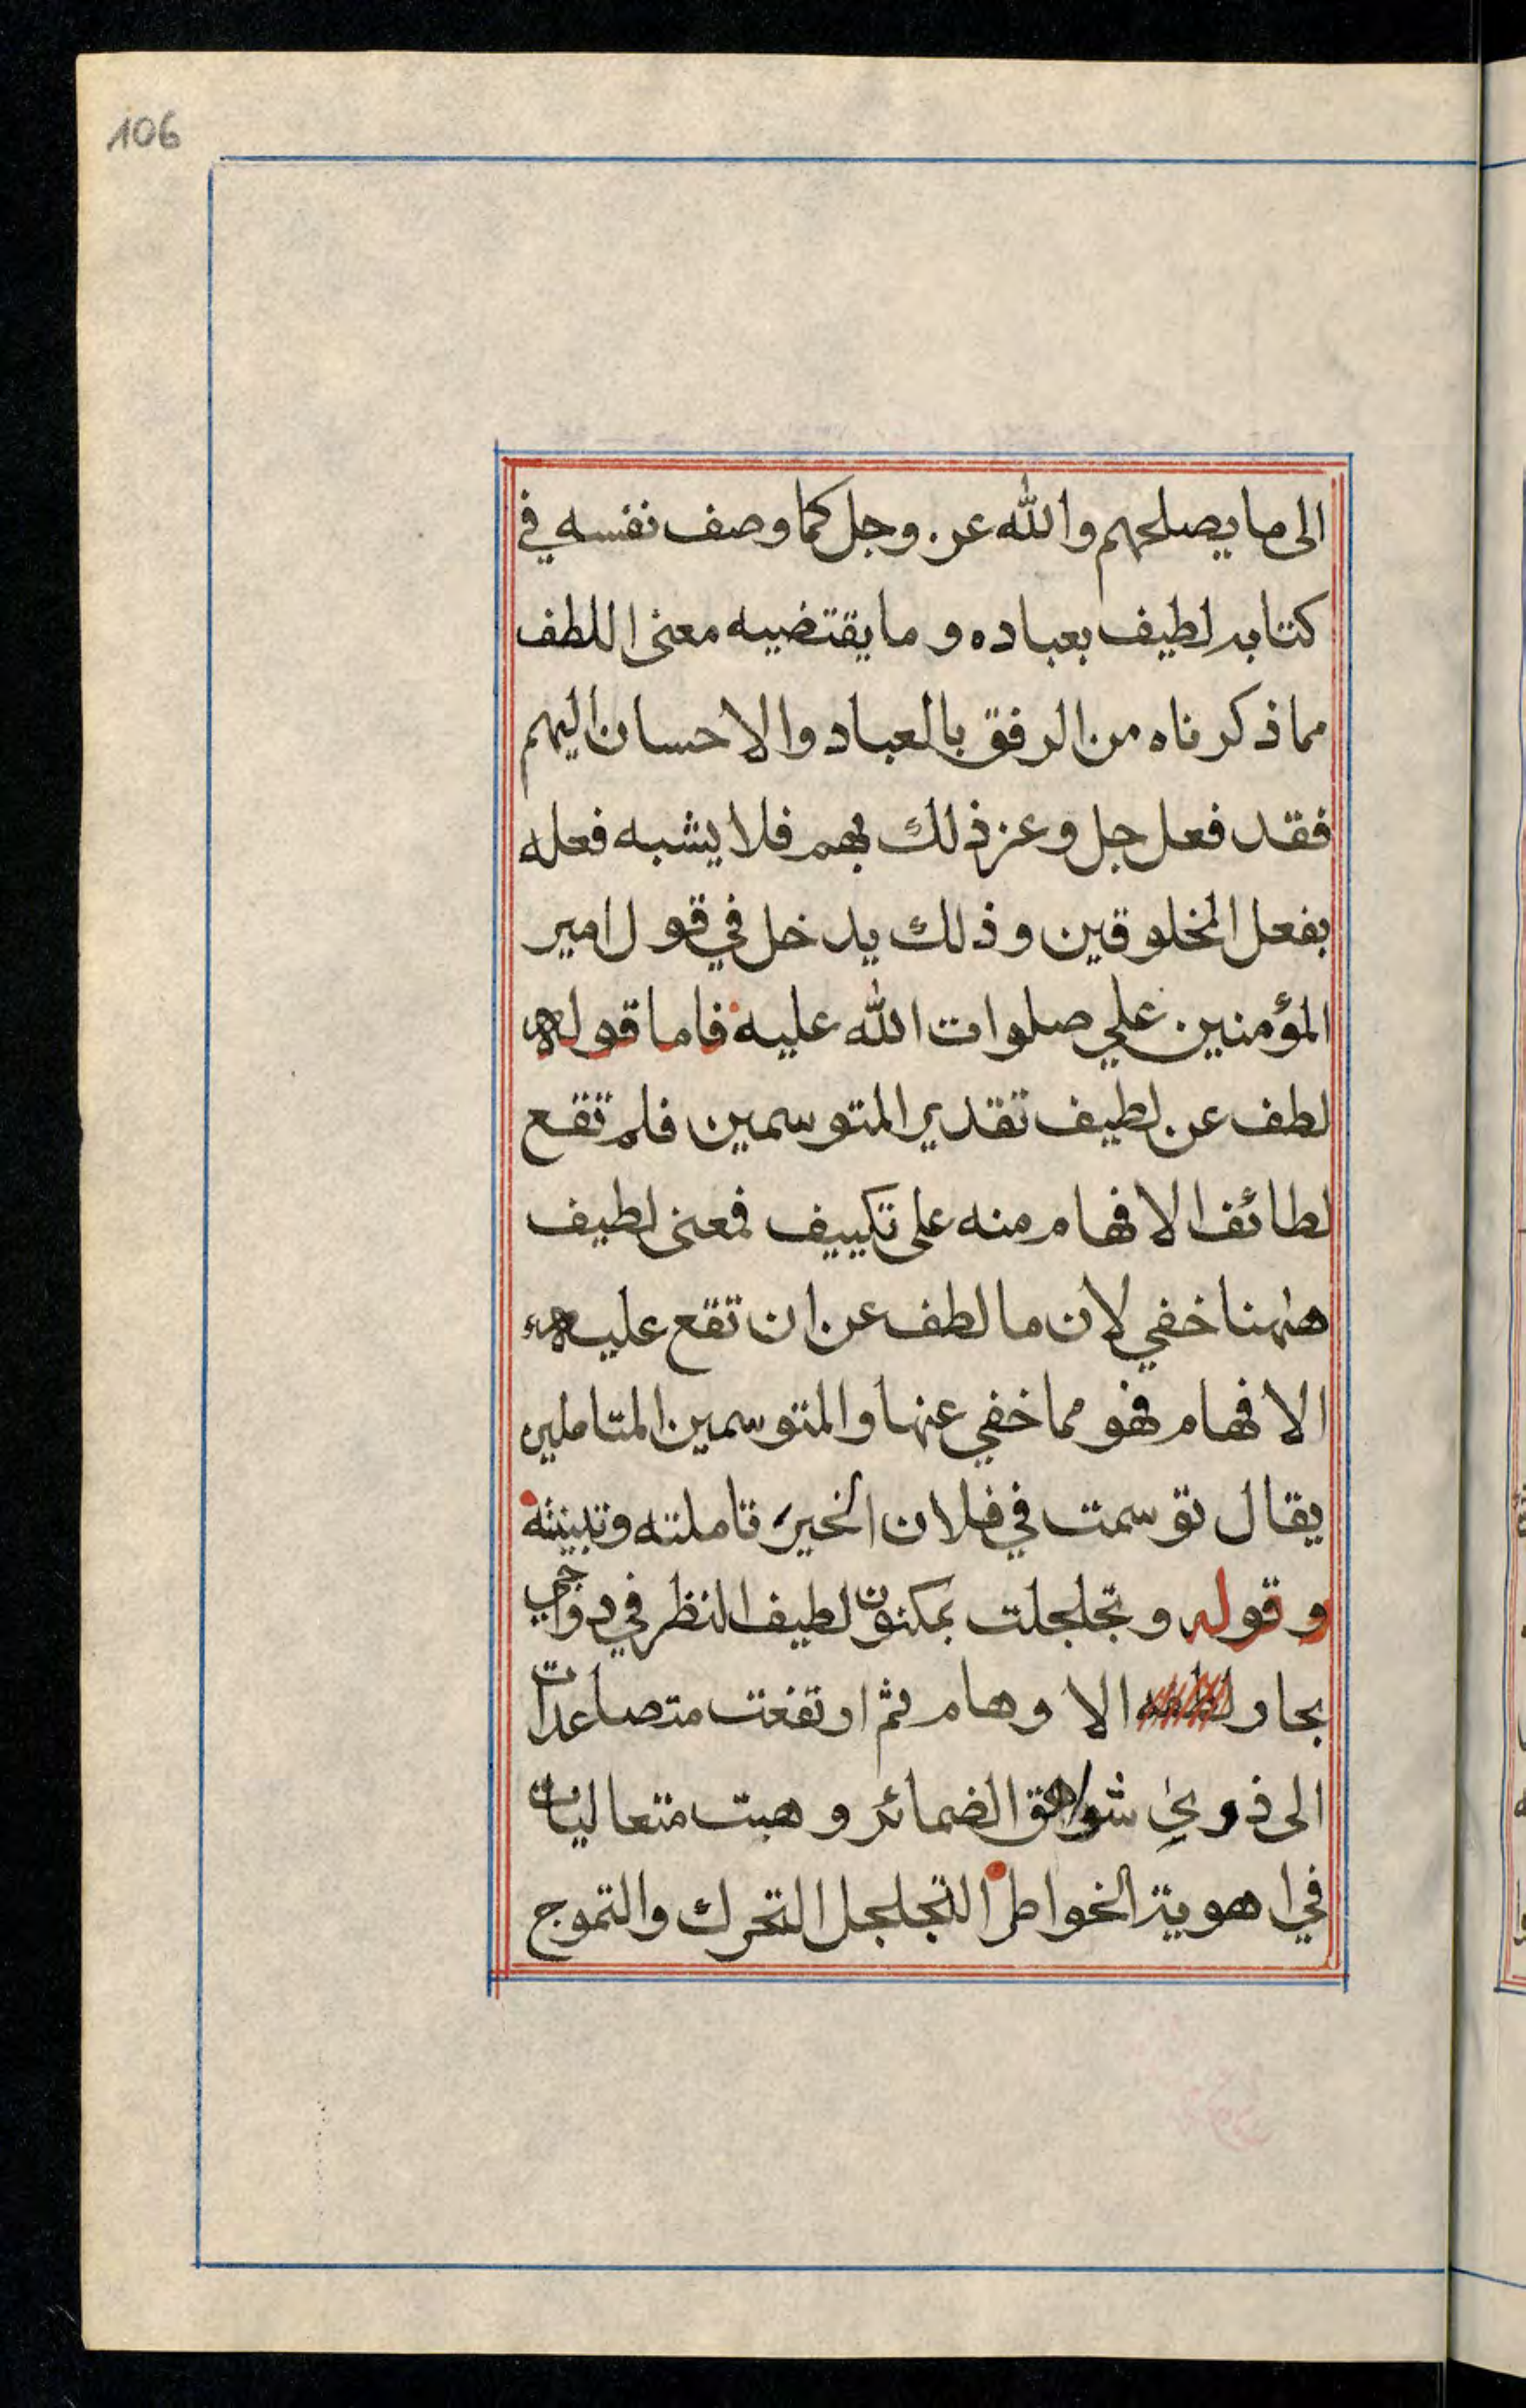 106
الى ما يصلحهم والله عز وجل كما وصف نفسه في
كتابه لطيف بعباده وما يقتضيه معنى اللطف
مما ذكرناه من الرفق بالعباد والاحسان اليهم
فقد فعل جل وعز ذلك بهم فلا يشبه فعله
بفعل المخلوقين وذلك يدخل في قول امير
المؤمنين علي صلوات الله عليه فاما قوله
لطف عن لطيف تقدير المتوسمين فلم تقع
لطائف الافهام منه على تكييف فمعنى لطيف
هٰهنا خفي لان ما لطف عن ان تقع عليه
الافهام فهو مما خفي عنها والمتوسمين المتاملين
يقال توسمت في فلان الخير تاملته وتبينته
وقوله وتجلجلت بمكنون لطيف النظر في دواجي
بحار الاوهام ثم ارتفعت متصاعدات
الى ذوي شواهق الضمائر وهبت متعاليات
في اهوية الخواطر التجلجل التحرك والتموج